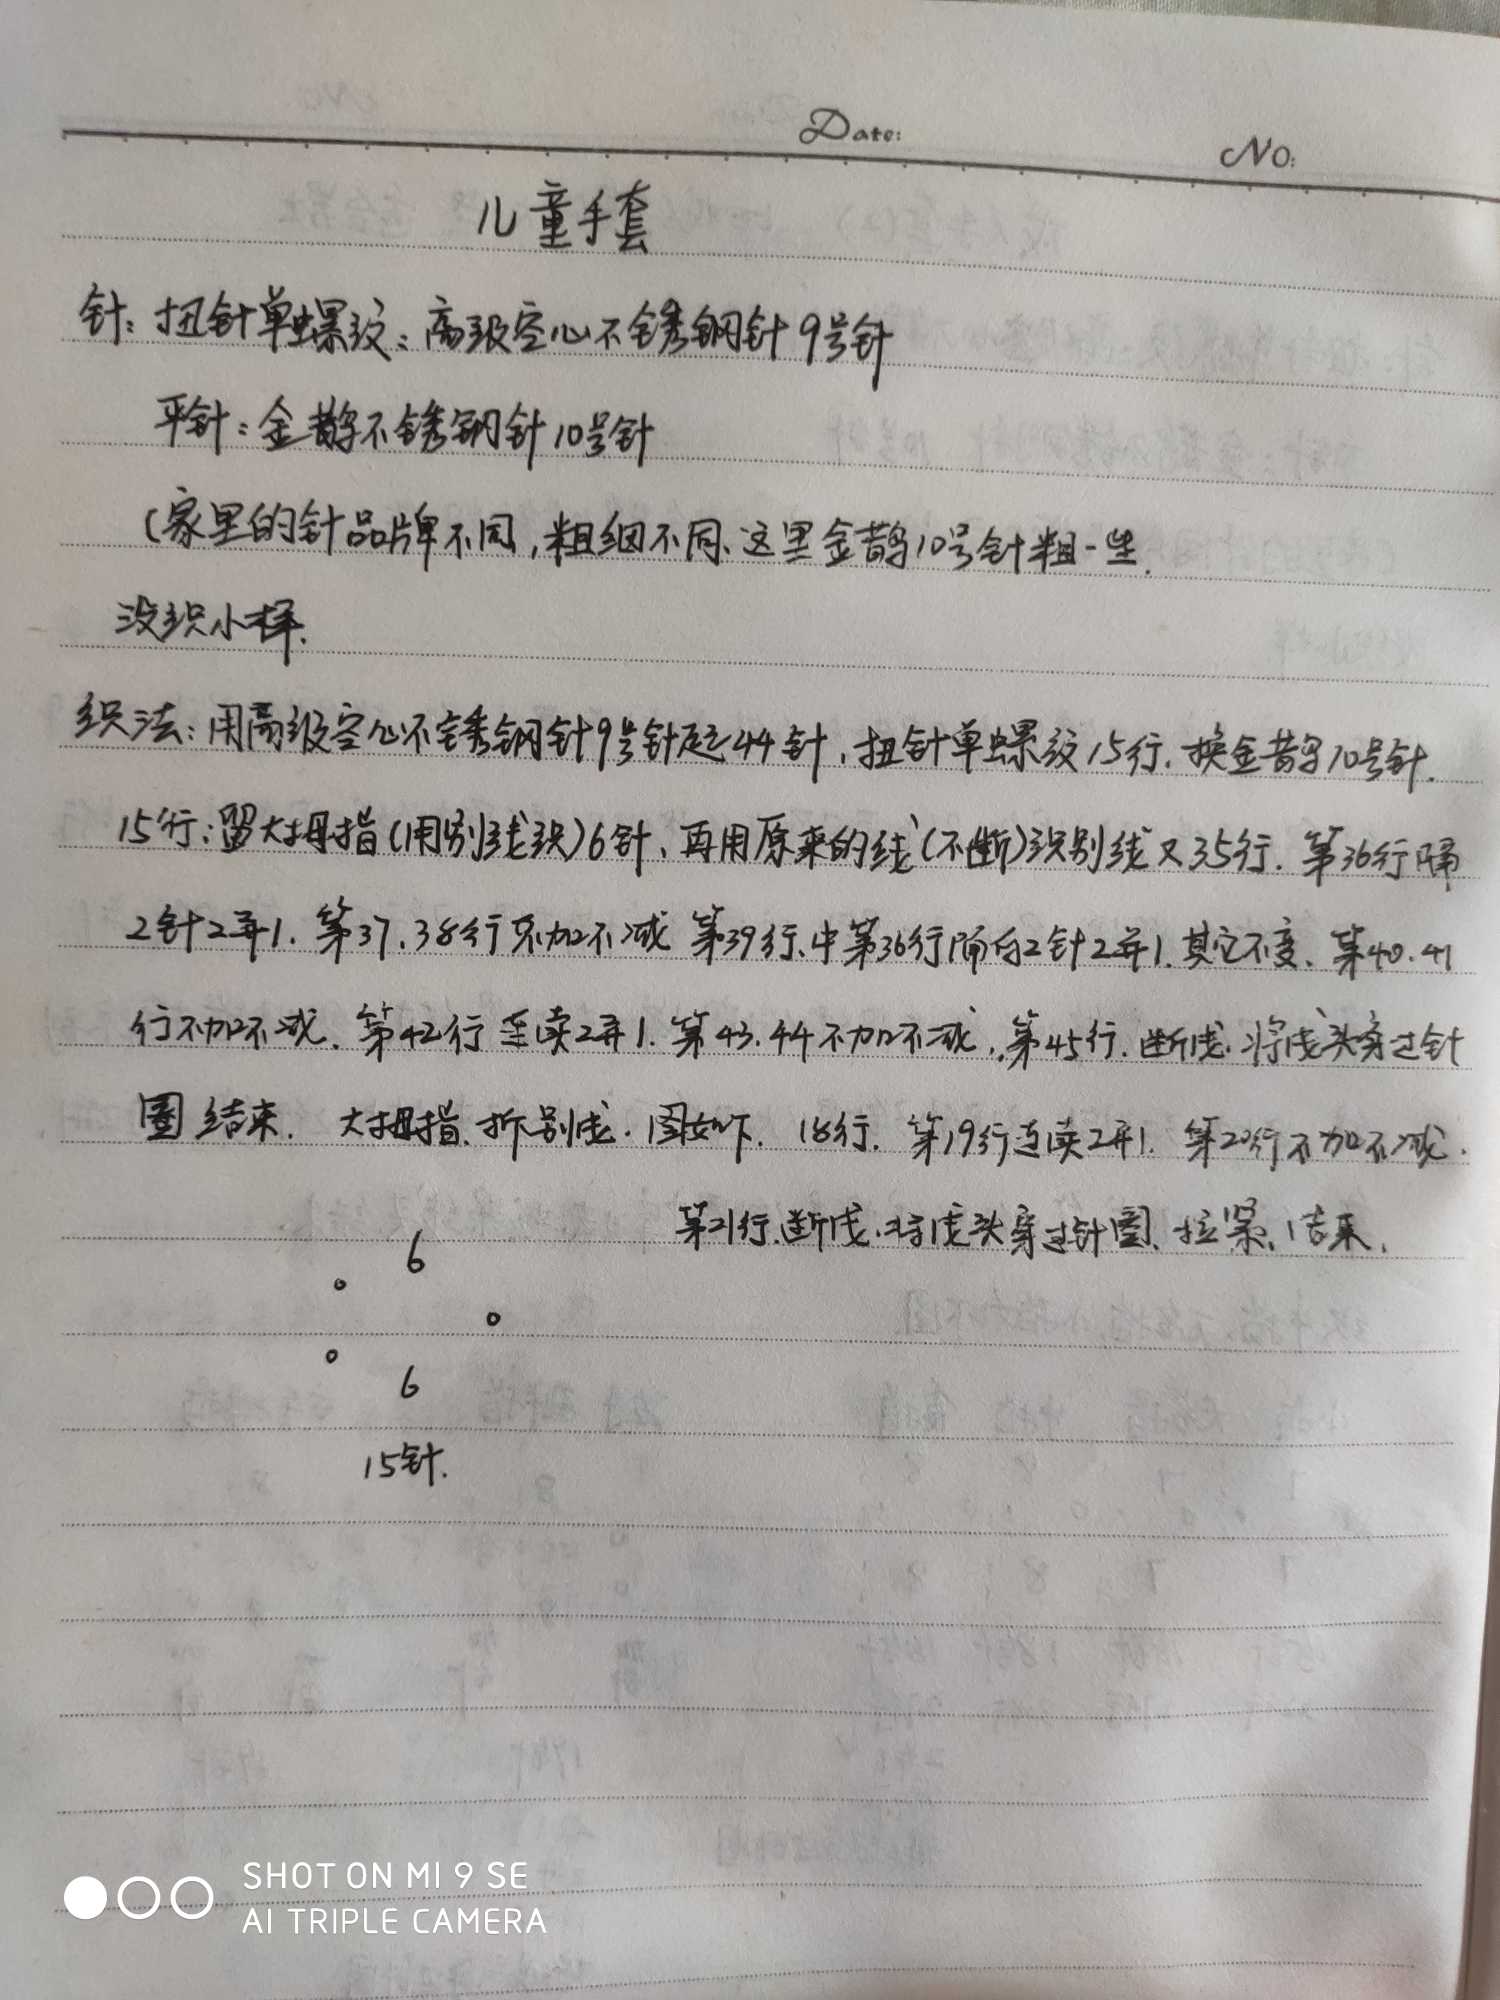 Date:
No:
儿童手套
针：扭针单螺纹：高级空心不锈钢针9号针
平针：金鹊不锈钢针10号针
（家里的针品牌不同，粗细不同、这里金鹊10号针粗一些.
没织小样.
织法：用高级空心不锈钢针9号针起44针，扭针单螺纹15行.换金鹊10号针.
15行；留大拇指(用别线织)6针、再用原来的线(不断)织别线又35行.第36行隔
2针2并1.第37、38行不加不减 第39行、中第36行隔的2针2并1.其它不变、第40.41
行不加不减.第42行连续2并1.第43.44不加不减，第45行.断线.将线头穿过针
圈结束. 大拇指.拆别线.图如下. 18行.第19行连续2并1. 第20行不加不减.
第21行.断线.将线头穿过针圈、拉紧、结束.
6
6
15针.
SHOT ON MI 9 SE
AI TRIPLE CAMERA